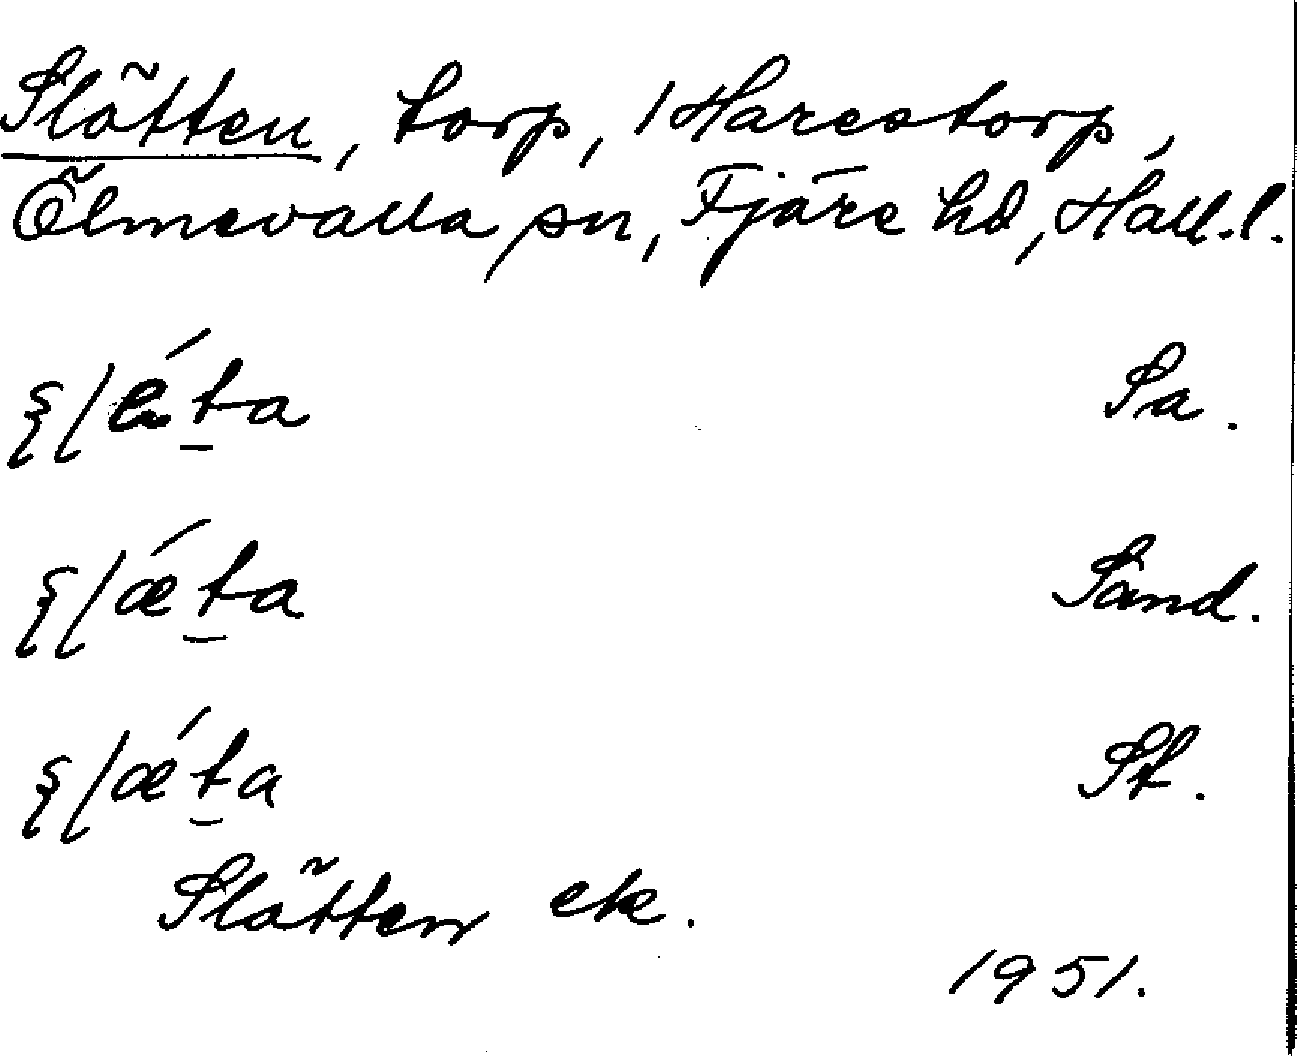 Slätten, torp, 1 Harestorp,
Ölmevalla sn, Fjäre hd, Hall.l.
ʂɭǽt̠a Sa.
ʂɭǽt̠a Sand.
ʂɭǽt̠a St.
Slätten ek.
1951.